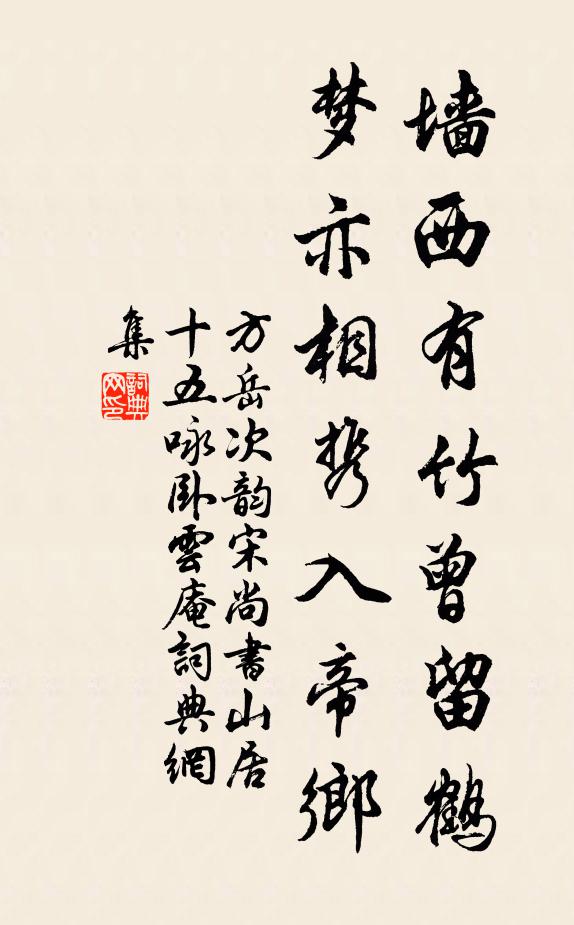 墙西有竹曾留鶴
梦亦相携入帝鄉
方岳次韵宋尚書山居
十五咏卧雲庵詞典網
集
詞典网印